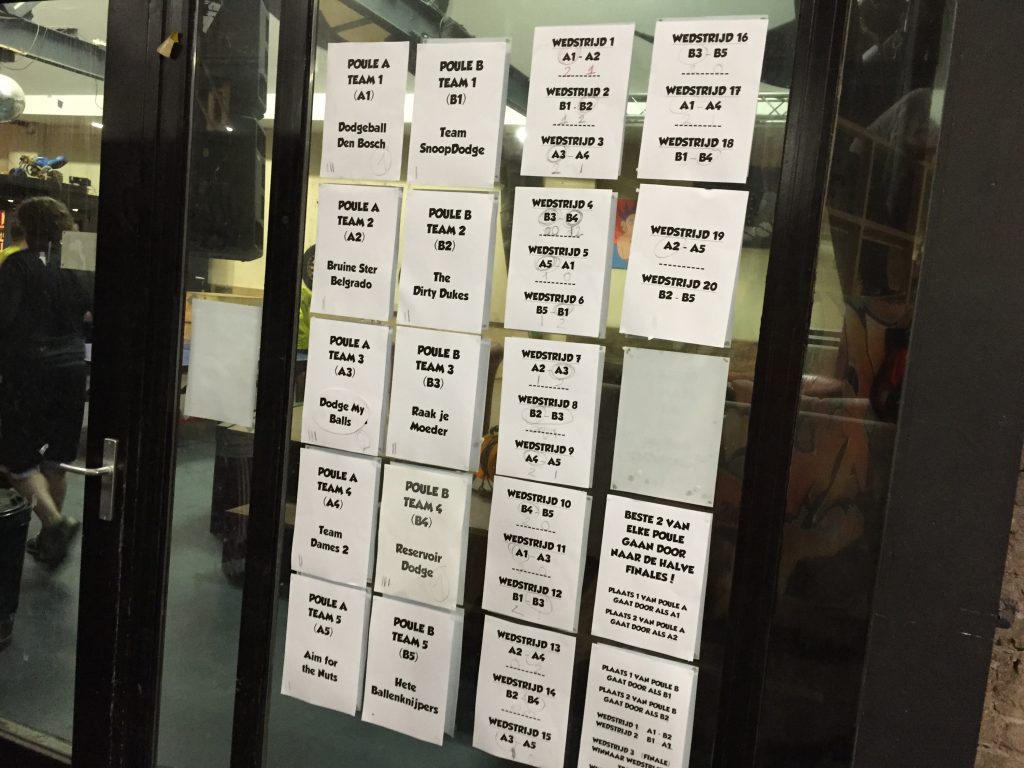 POULE A
TEAM 1
(A1)
Dodgeball
Den Bosch
POULE B
TEAM 1
(B1)
Team
SnoopDodge
POULE A
TEAM 2
(A2)
Bruine Ster
Belgrado
POULE B
TEAM 2
(B2)
The
Dirty Dukes
POULE A
TEAM 3
(A3)
Dodge My
Balls
POULE B
TEAM 3
(B3)
Raak je
Moeder
POULE A
TEAM 4
(A4)
Team
Dames 2
POULE B
TEAM 4
(B4)
Reservoir
Dodge
POULE A
TEAM 5
(A5)
Aim for
the Nuts
POULE B
TEAM 5
(B5)
Hete
Ballenknijpers
WEDSTRIJD 1
A1 - A2
2 1
WEDSTRIJD 2
B1 - B2
WEDSTRIJD 3
A3 - A4
WEDSTRIJD 4
B3 - B4
WEDSTRIJD 5
A5 A1
WEDSTRIJD 6
B5 B1
1 2
WEDSTRIJD 7
A2 - A3
WEDSTRIJD 8
B2 - B3
WEDSTRIJD 9
A4 - A5
2 1
WEDSTRIJD 10
B4 - B5
WEDSTRIJD 11
A1 A3
WEDSTRIJD 12
B1 - B3
WEDSTRIJD 13
A2 - A4
WEDSTRIJD 14
B2 B4
WEDSTRIJD 15
A3 A5
WEDSTRIJD 16
B3 - B5
WEDSTRIJD 17
A1 - A4
WEDSTRIJD 18
B1 - B4
WEDSTRIJD 19
A2 - A5
WEDSTRIJD 20
B2 - B5
BESTE 2 VAN
ELKE POULE
GAAN DOOR
NAAR DE HALVE
FINALES!
PLAATS 1 VAN POULE A
GAAT DOOR ALS A1
PLAATS 2 VAN POULE A
GAAT DOOR ALS A2
PLAATS 1 VAN POULE B
GAAT DOOR ALS B1
PLAATS 2 VAN POULE B
GAAT DOOR ALS B2
WEDSTRIJD 1 A1 - B2
WEDSTRIJD 2 B1 A2
WEDSTRIJD 3 (FINALE)
WINNAAR